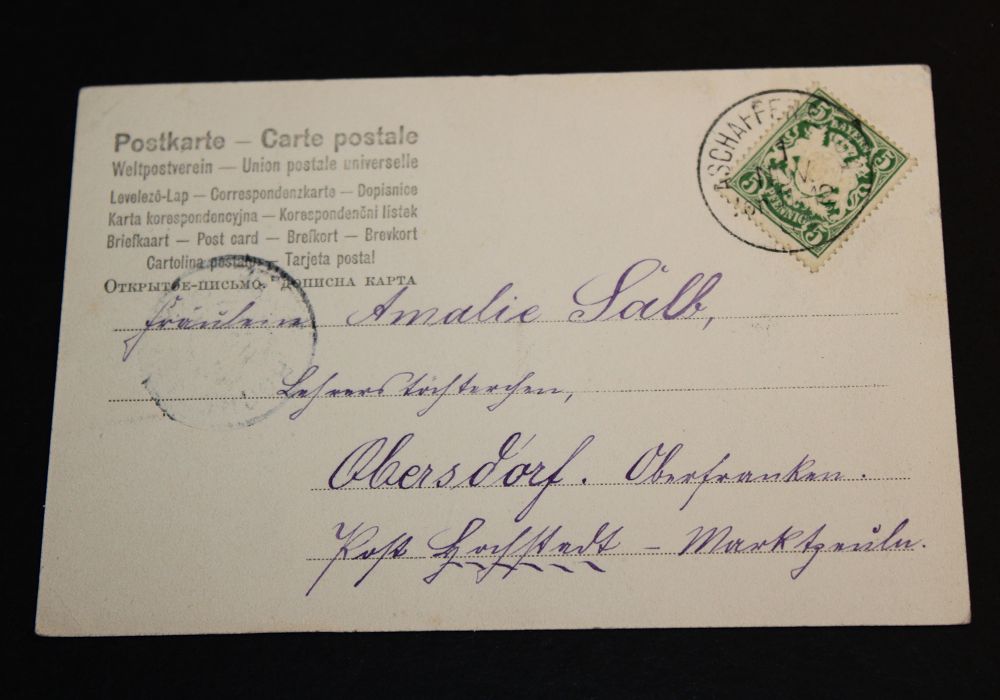 Postkarte – Carte postale
Weltpostverein – Union postale universelle
Levelező-Lap – Correspondenzkarte – Dopisnice
Karta korespondencyjna – Korespondenční listek
Briefkaart – Post card – Brefkort – Brevkort
Cartolina postale – Tarjeta postal
ОТКРЫТОЕ-ПИСЬМО. ДОПИСНА КАРТА
ASCHAFFEN
5 5 5 5
BAYERN
PFENNIG
Fräulein Amalie Salb,
Lehrerstöchterchen,
Obersdorf. Oberfranken.
Post Hochstadt – Marktzeuln.